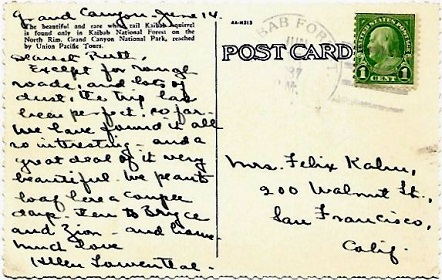 Grand Canyon June 14.
The beautiful and rare white tail Kaibab squirrel
is found only in Kaibab National Forest on the
North Rim, Grand Canyon National Park, reached
by Union Pacific Tours.
Dearest Ruth,
Except for rough
roads, and lots of
dust, the trip has
been perfect, so far.
We have found it all
so interesting - and a
great deal of it very
beautiful. We plan to
loaf here a couple
days - then to Bryce
and Zion - and home.
Much love
Helen Lowenthal.
POST CARD
KAIBAB FOREST
JUN
UNITED STATES POSTAGE
1 CENT 1
Mrs. Felix Kahn,
200 Walnut St.,
San Francisco,
Calif.